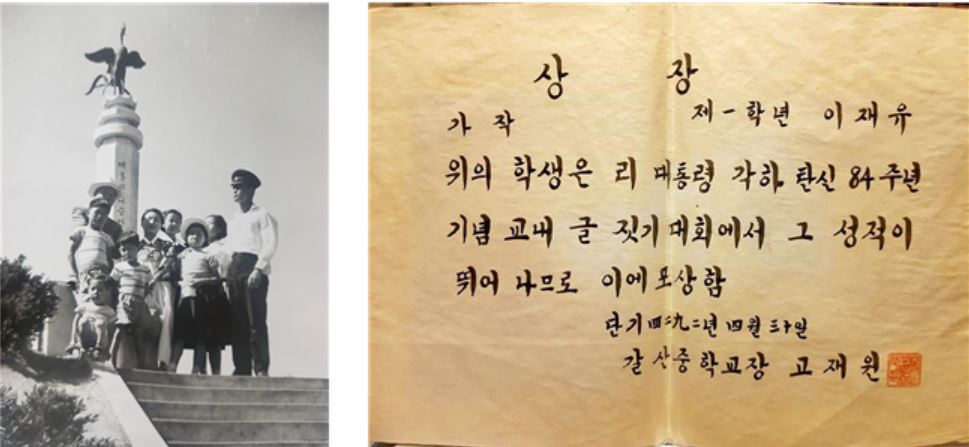 상 장
제一학년 이재유
가작
위의 학생은 리 대통령 각하 탄신 84주년
기념 교내 글 짓기 대회에서 그 성적이
뛰어 나므로 이에 포상함
단기四二九二년 四월 三十일
갈산중학교장 고재원